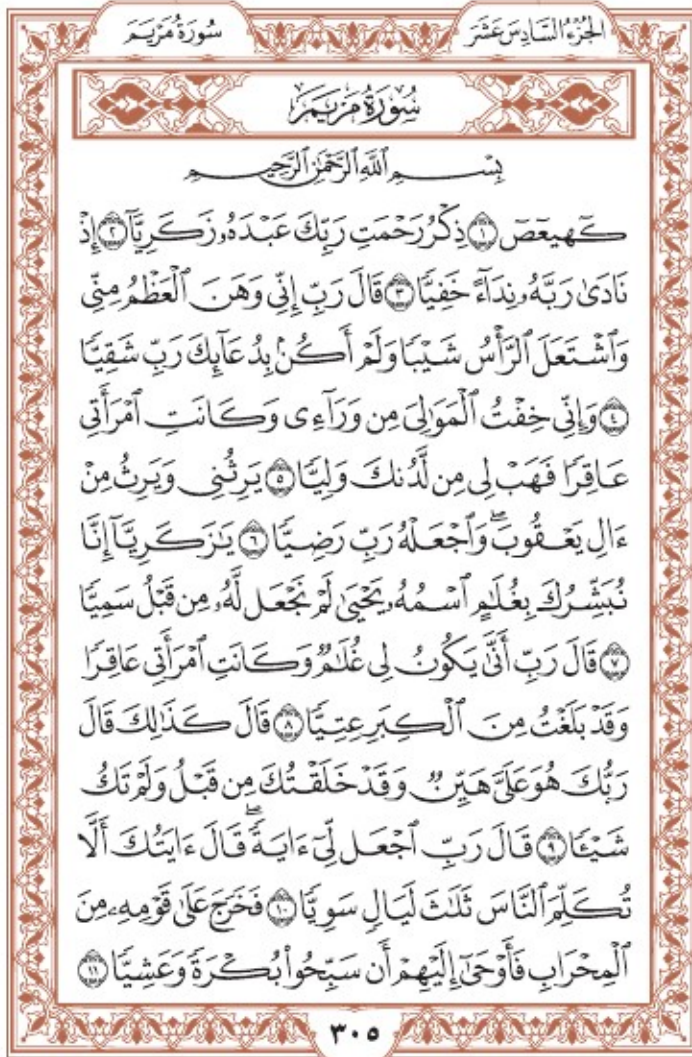 الجُزْءُ السَّادِسَ عَشَرَ
سُورَةُ مَرْيَم
سُورَةُ مَرْيَمَ
بِسْمِ ٱللَّهِ ٱلرَّحْمَٰنِ ٱلرَّحِيمِ
كٓهيعٓصٓ ١ ذِكْرُ رَحْمَتِ رَبِّكَ عَبْدَهُۥ زَكَرِيَّآ ٢ إِذْ
نَادَىٰ رَبَّهُۥ نِدَآءً خَفِيًّا ٣ قَالَ رَبِّ إِنِّى وَهَنَ ٱلْعَظْمُ مِنِّى
وَٱشْتَعَلَ ٱلرَّأْسُ شَيْبًا وَلَمْ أَكُنۢ بِدُعَآئِكَ رَبِّ شَقِيًّا
٤ وَإِنِّى خِفْتُ ٱلْمَوَٰلِىَ مِن وَرَآءِى وَكَانَتِ ٱمْرَأَتِى
عَاقِرًا فَهَبْ لِى مِن لَّدُنكَ وَلِيًّا ٥ يَرِثُنِى وَيَرِثُ مِنْ
ءَالِ يَعْقُوبَ ۖ وَٱجْعَلْهُ رَبِّ رَضِيًّا ٦ يَٰزَكَرِيَّآ إِنَّا
نُبَشِّرُكَ بِغُلَٰمٍ ٱسْمُهُۥ يَحْيَىٰ لَمْ نَجْعَل لَّهُۥ مِن قَبْلُ سَمِيًّا
٧ قَالَ رَبِّ أَنَّىٰ يَكُونُ لِى غُلَٰمٌ وَكَانَتِ ٱمْرَأَتِى عَاقِرًا
وَقَدْ بَلَغْتُ مِنَ ٱلْكِبَرِ عِتِيًّا ٨ قَالَ كَذَٰلِكَ قَالَ
رَبُّكَ هُوَ عَلَىَّ هَيِّنٌ وَقَدْ خَلَقْتُكَ مِن قَبْلُ وَلَمْ تَكُ
شَيْـًٔا ٩ قَالَ رَبِّ ٱجْعَل لِّىٓ ءَايَةً ۚ قَالَ ءَايَتُكَ أَلَّا
تُكَلِّمَ ٱلنَّاسَ ثَلَٰثَ لَيَالٍ سَوِيًّا ١٠ فَخَرَجَ عَلَىٰ قَوْمِهِۦ مِنَ
ٱلْمِحْرَابِ فَأَوْحَىٰٓ إِلَيْهِمْ أَن سَبِّحُوا۟ بُكْرَةً وَعَشِيًّا ١١
٣٠٥